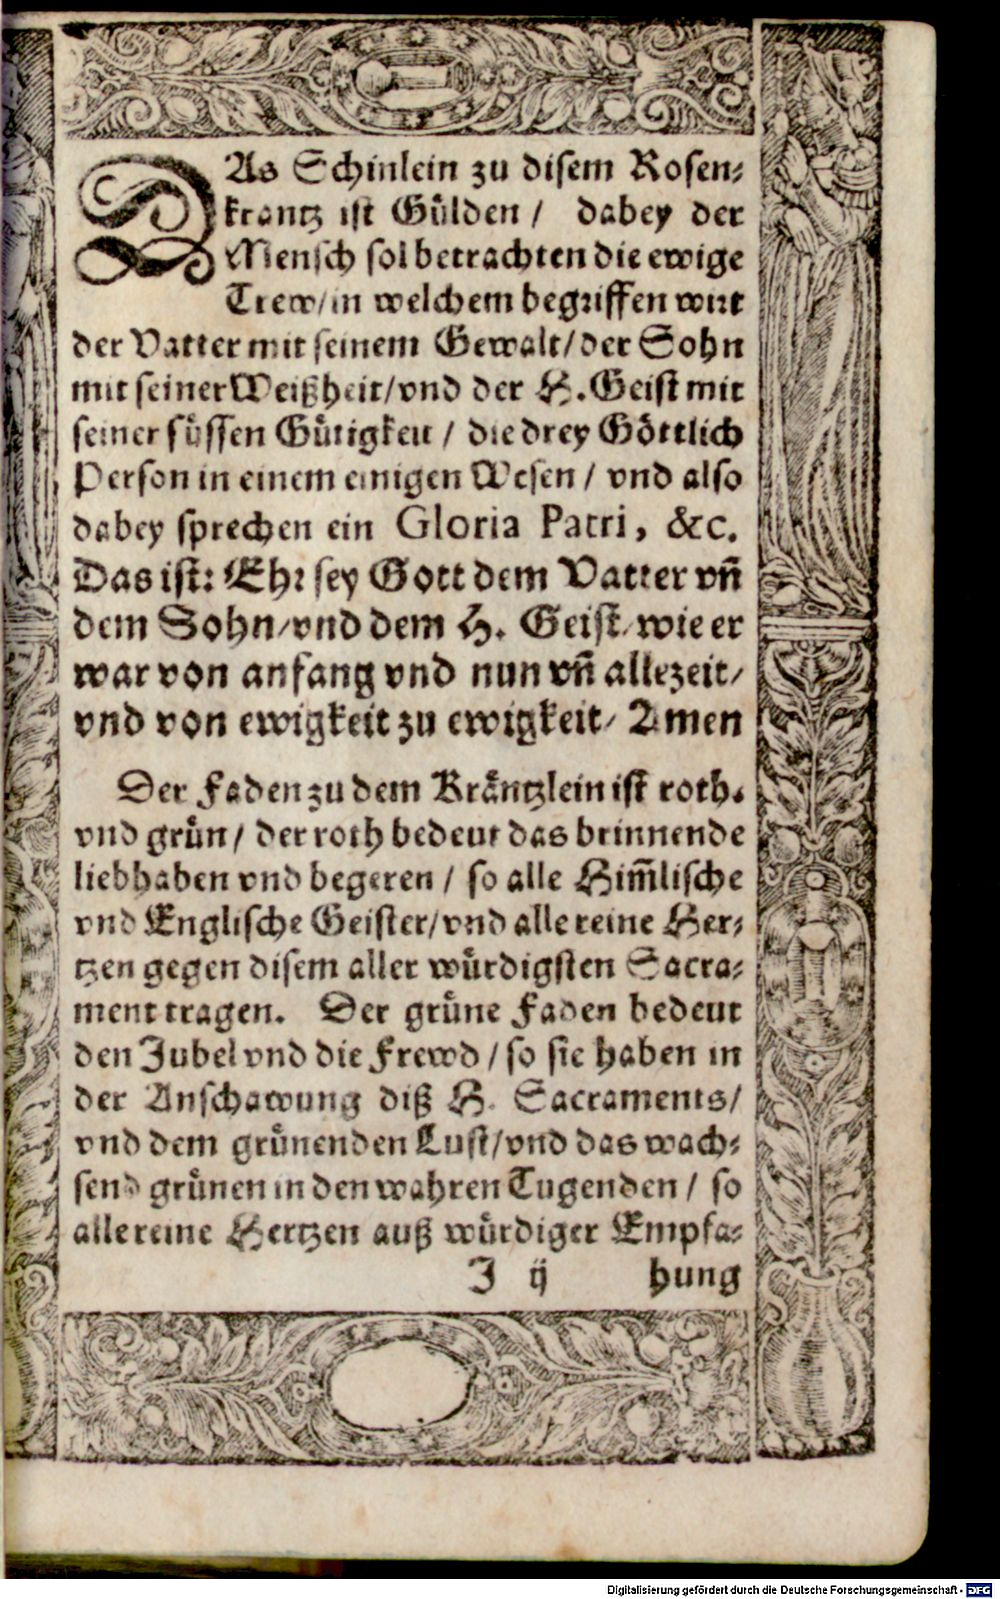 DAs Schinlein zu disem Rosen⸗
krantz ist Gůlden / dabey der
Mensch sol betrachten die ewige
Trew/in welchem begriffen wirt
der Vatter mit seinem Gewalt/der Sohn
mit seiner Weißheit/vnd der H. Geist mit
seiner sůssen Gůtigkeit / die drey Göttlich
Person in einem einigen Wesen / vnd also
dabey sprechen ein Gloria Patri, &c.
Das ist: Ehr sey Gott dem Vatter vñ
dem Sohn/vnd dem H. Geist/wie er
war von anfang vnd nun vñ allezeit/
vnd von ewigkeit zu ewigkeit/ Amen
Der Faden zu dem Kräntzlein ist roth.
vnd grůn/ der roth bedeut das brinnende
liebhaben vnd begeren / so alle Him̃lische
vnd Englische Geister/vnd alle reine Her⸗
tzen gegen disem aller wůrdigsten Sacra⸗
ment tragen. Der grůne Faden bedeut
den Jubel vnd die Frewd / so sie haben in
der Anschawung diß H. Sacraments/
vnd dem grůnenden Lust/vnd das wach⸗
send grůnen in den wahren Tugenden / so
alle reine Hertzen auß wůrdiger Empfa⸗
J ij hung
Digitalisierung gefördert durch die Deutsche Forschungsgemeinschaft - DFG